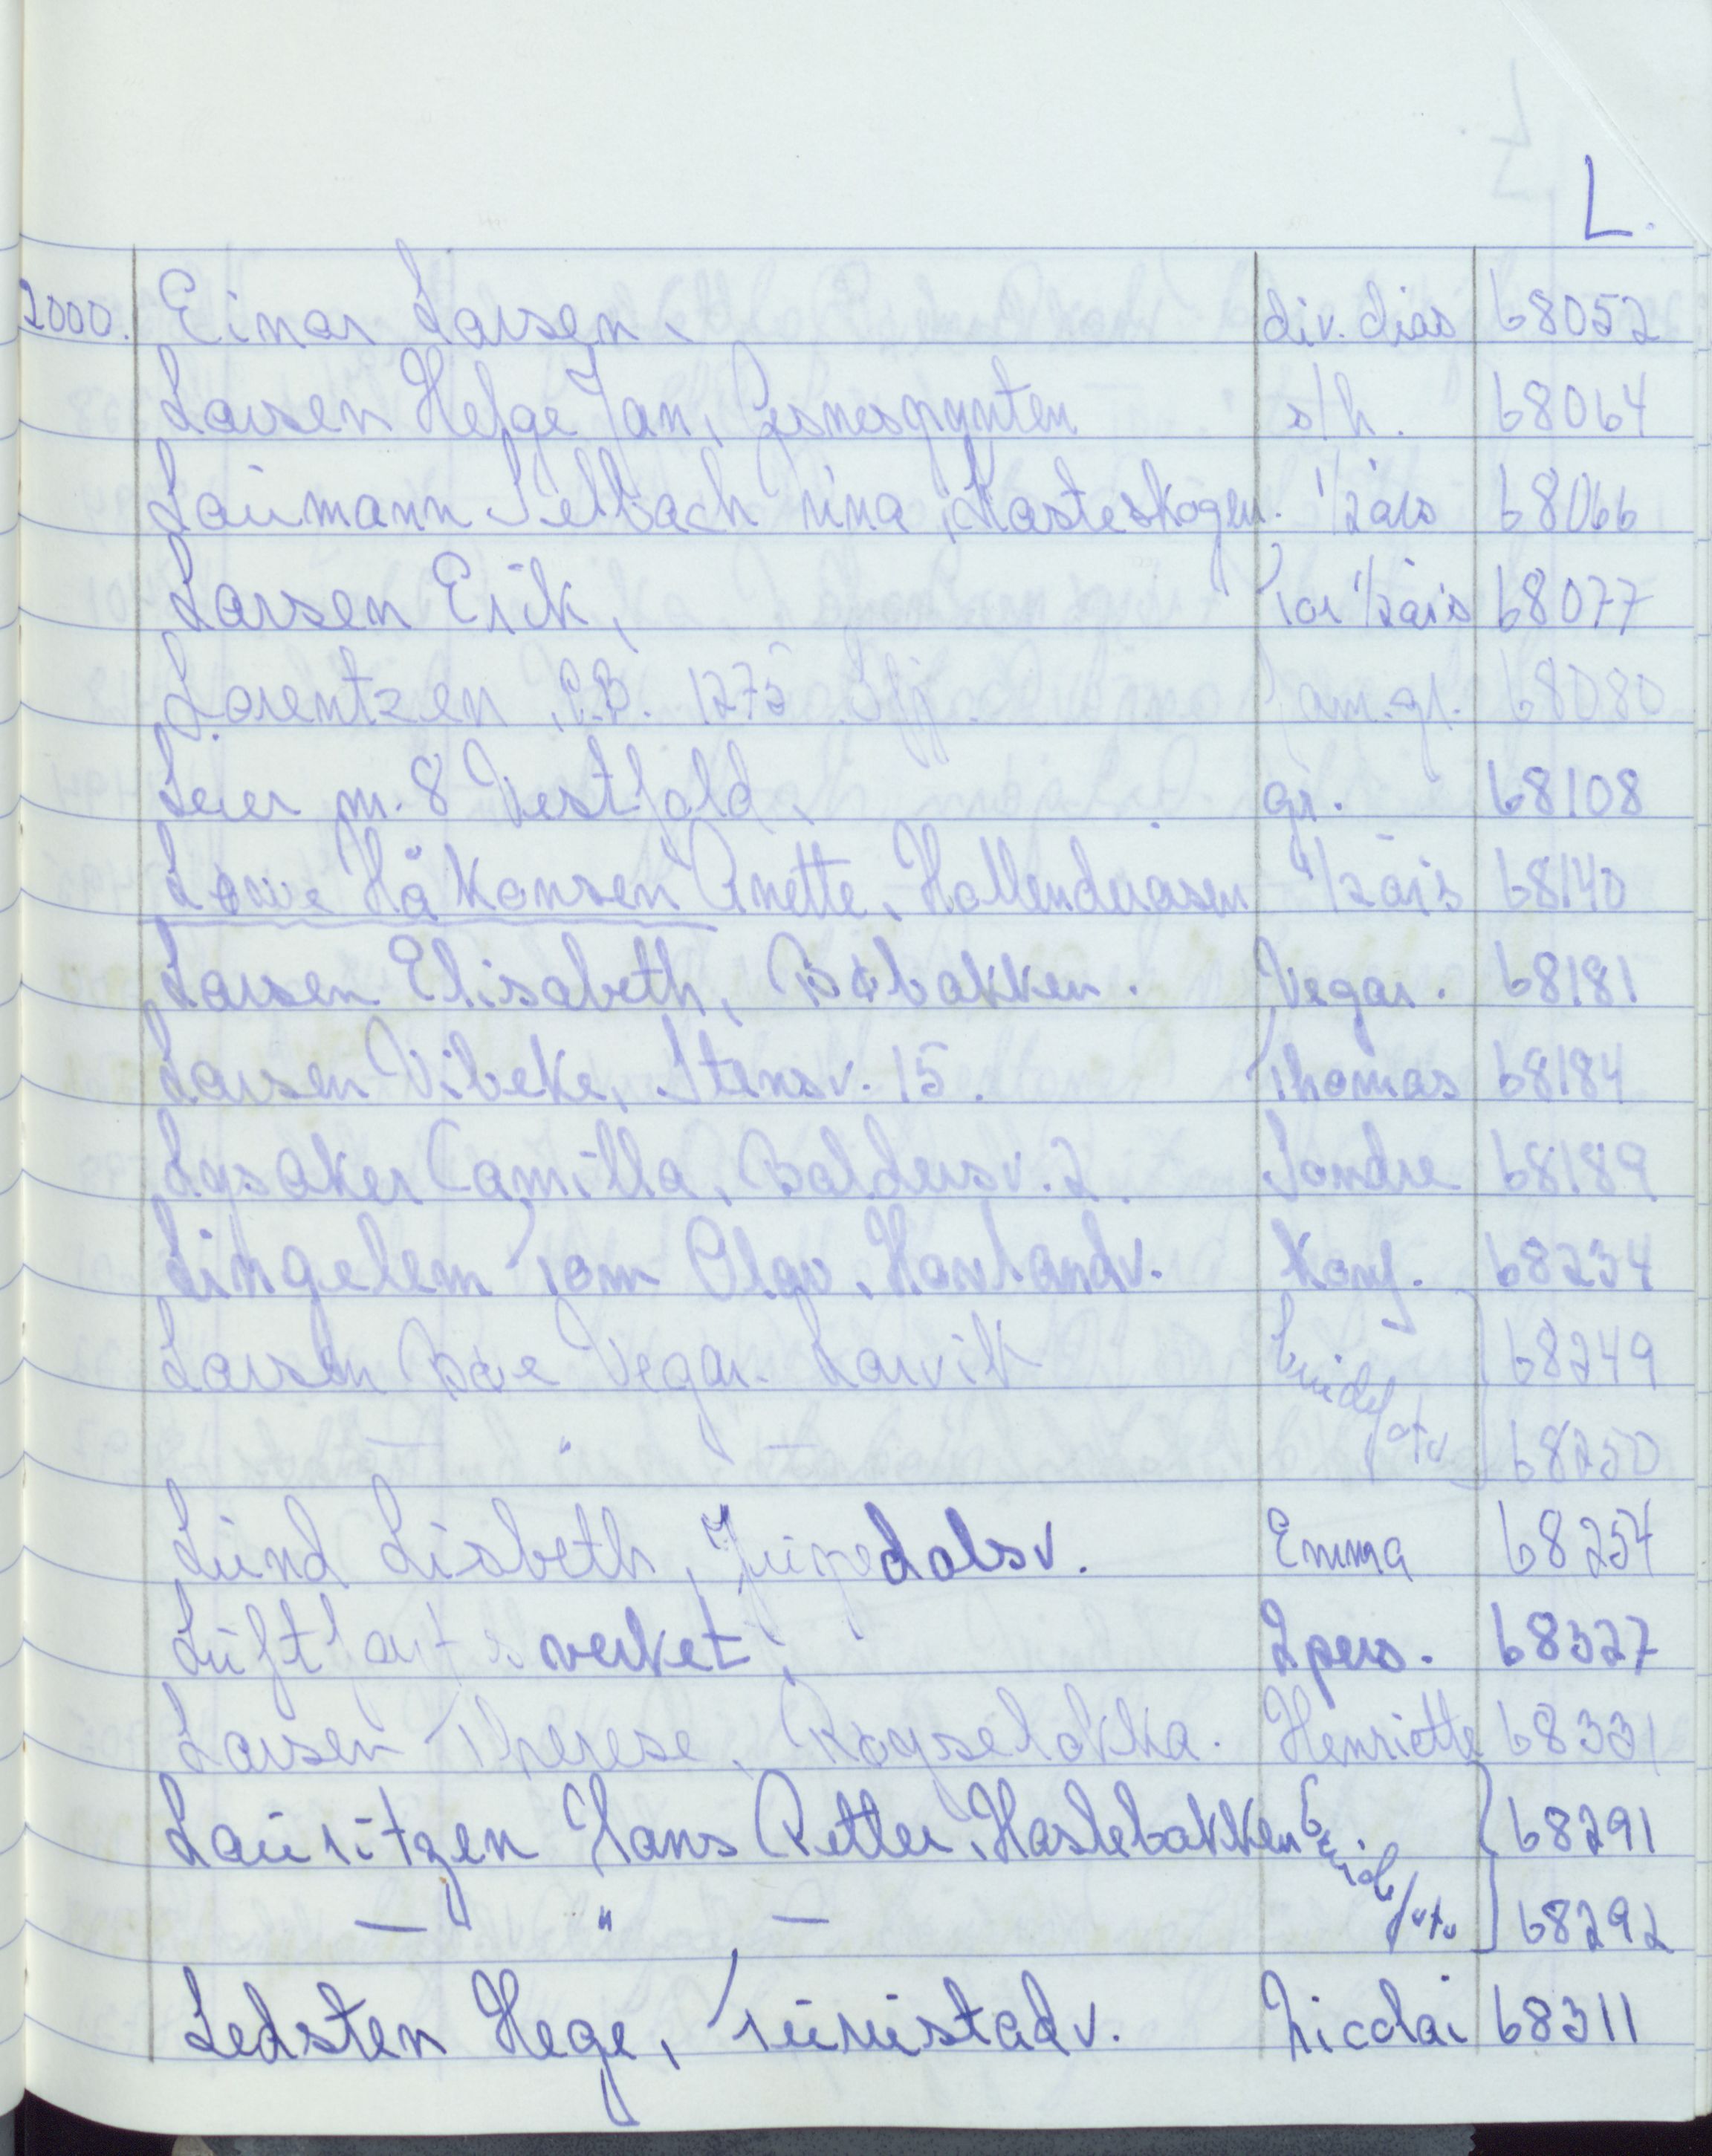 L.
2000. Einar Larsen. div. dias 68052
Larsen Helge Jan, Gismerøynten s/h. 68064
Laumann Selbach Nina, Kasteskogen. 1/2 års 68066
Larsen Erik, Tor 1/2 års 68077
Lorentzen, P.B. 1275 Sfj. fam.gr. 68080
Leier m. 8 Vestfold, gr. 68108
Lowe Håkonsen Anette, Hollenderåsen 1/2 års 68140
Larsen Elisabeth, Bøbakken. Vegar. 68181
Larsen Vibeke, Stensv. 15. Thomas 68184
Lysaker Camilla, Baldersv. 2. Sondre 68189
Lingelem Tom Olav, Havlandv. Konf. 68234
Larsen Bøe Vegar. Larvik brude/ 68249
— " — 68250
Lund Lisbeth, dalsv. Emma 68254
Luftfartsverket, 2 pers. 68327
Larsen Therese, Røyseløkka. Henriette 68331
Lauritzen Hans Petter, Haslebakken brude/ 68291
— " — 68292
Ledsten Hege, Furustadv. Nicolai 68311